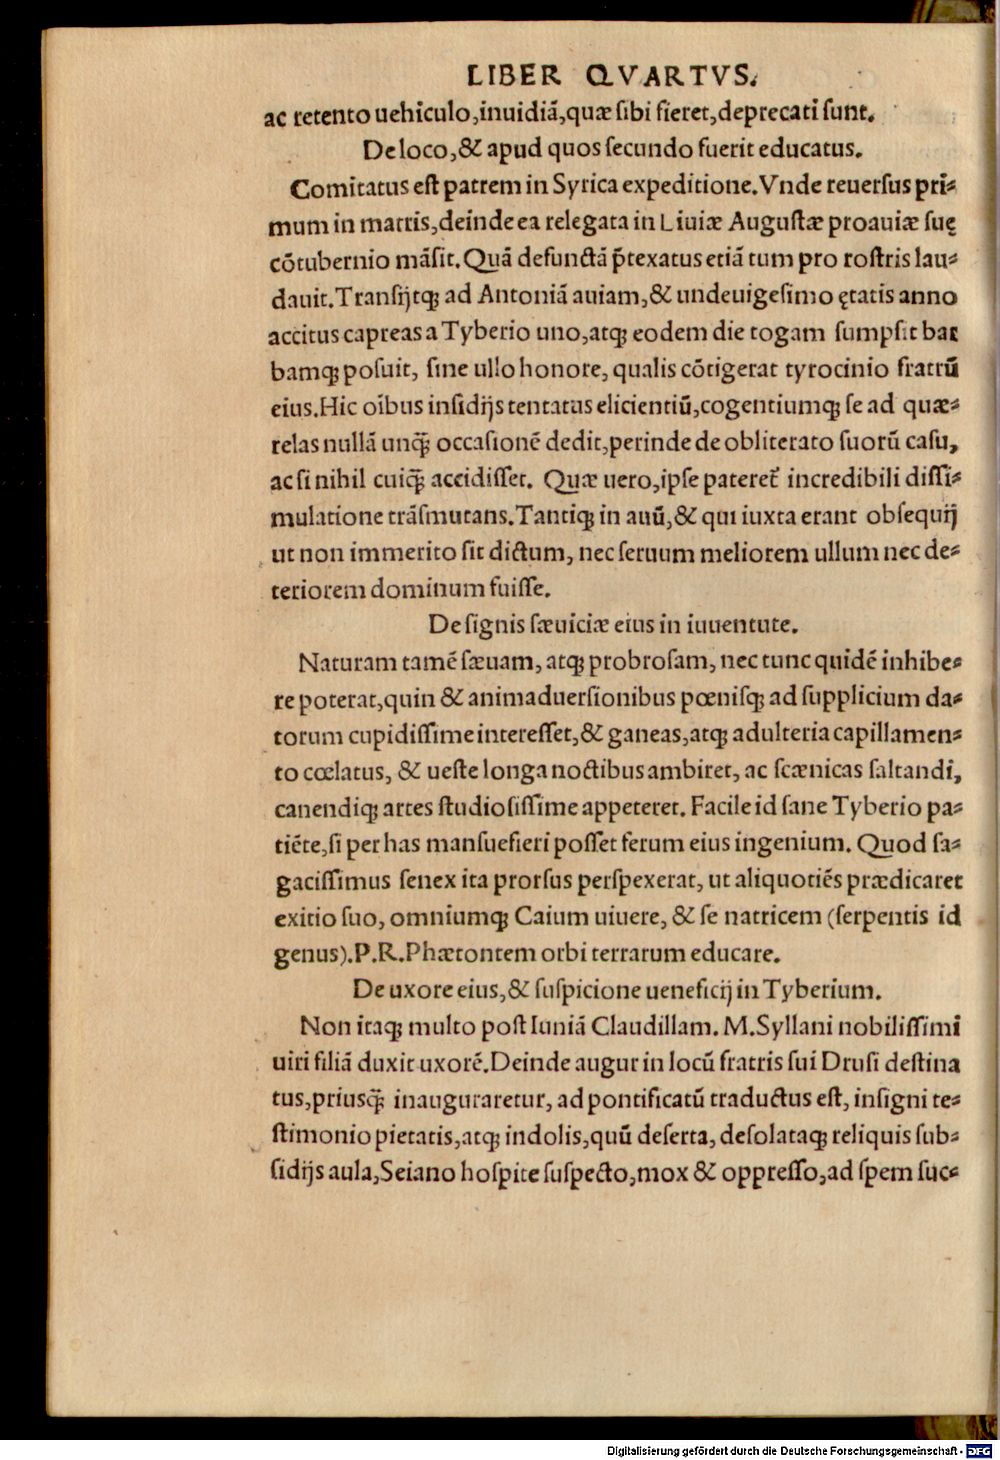 LIBER QVARTVS.
ac retento uehiculo,inuidiã,quæ ſibi fieret,deprecati ſunt.
De loco,& apud quos ſecundo fuerit educatus.
Comitatus eſt patrem in Syrica expeditione.Vnde reuerſus pri⸗
mum in matris,deinde ea relegata in Liuiæ Auguſtæ proauiæ ſuę
cõtubernio mãſit.Quã defunctã p̃texatus etiã tum pro roſtris lau⸗
dauit.Tranſijtqꝫ ad Antoniã auiam,& undeuigeſimo ętatis anno
accitus capreas a Tyberio uno,atqꝫ eodem die togam ſumpſit bar
bamqꝫ poſuit, ſine ullo honore, qualis cõtigerat tyrocinio fratrũ
eius.Hic oĩbus inſidijs tentatus elicientiũ,cogentiumqꝫ ſe ad quæ⸗
relas nullã unq̃ occaſionẽ dedit,perinde de obliterato ſuorũ caſu,
ac ſi nihil cuiq̃ accidiſſet. Quæ uero,ipſe pateret̃ incredibili diſſi⸗
mulatione trãſmutans.Tantiqꝫ in auũ,& qui iuxta erant obſequij
ut non immerito ſit dictum, nec ſeruum meliorem ullum nec de⸗
teriorem dominum fuiſſe.
De ſignis ſæuiciæ eius in iuuentute.
Naturam tamẽ ſæuam, atqꝫ probroſam, nec tunc quidẽ inhibe⸗
re poterat,quin & animaduerſionibus pœniſqꝫ ad ſupplicium da⸗
torum cupidiſſime intereſſet,& ganeas,atqꝫ adulteria capillamen⸗
to cœlatus, & ueſte longa noctibus ambiret, ac ſcænicas ſaltandi,
canendiqꝫ artes ſtudioſiſſime appeteret. Facile id ſane Tyberio pa⸗
tiẽte,ſi per has manſuefieri poſſet ferum eius ingenium. Quod ſa⸗
gaciſſimus ſenex ita prorſus perſpexerat, ut aliquotiẽs prædicaret
exitio ſuo, omniumqꝫ Caium uiuere, & ſe natricem (ſerpentis id
genus).P.R.Phætontem orbi terrarum educare.
De uxore eius,& ſuſpicione ueneficij in Tyberium.
Non itaqꝫ multo poſt Iuniã Claudillam. M.Syllani nobiliſſimi
uiri filiã duxit uxorẽ.Deinde augur in locũ fratris ſui Druſi deſtina
tus,priusq̃ inauguraretur, ad pontificatũ traductus eſt, inſigni te⸗
ſtimonio pietatis,atqꝫ indolis,quũ deſerta, deſolataqꝫ reliquis ſub⸗
ſidijs aula,Seiano hoſpite ſuſpecto,mox & oppreſſo,ad ſpem ſuc⸗
Digitalisierung gefördert durch die Deutsche Forschungsgemeinschaft - DFG